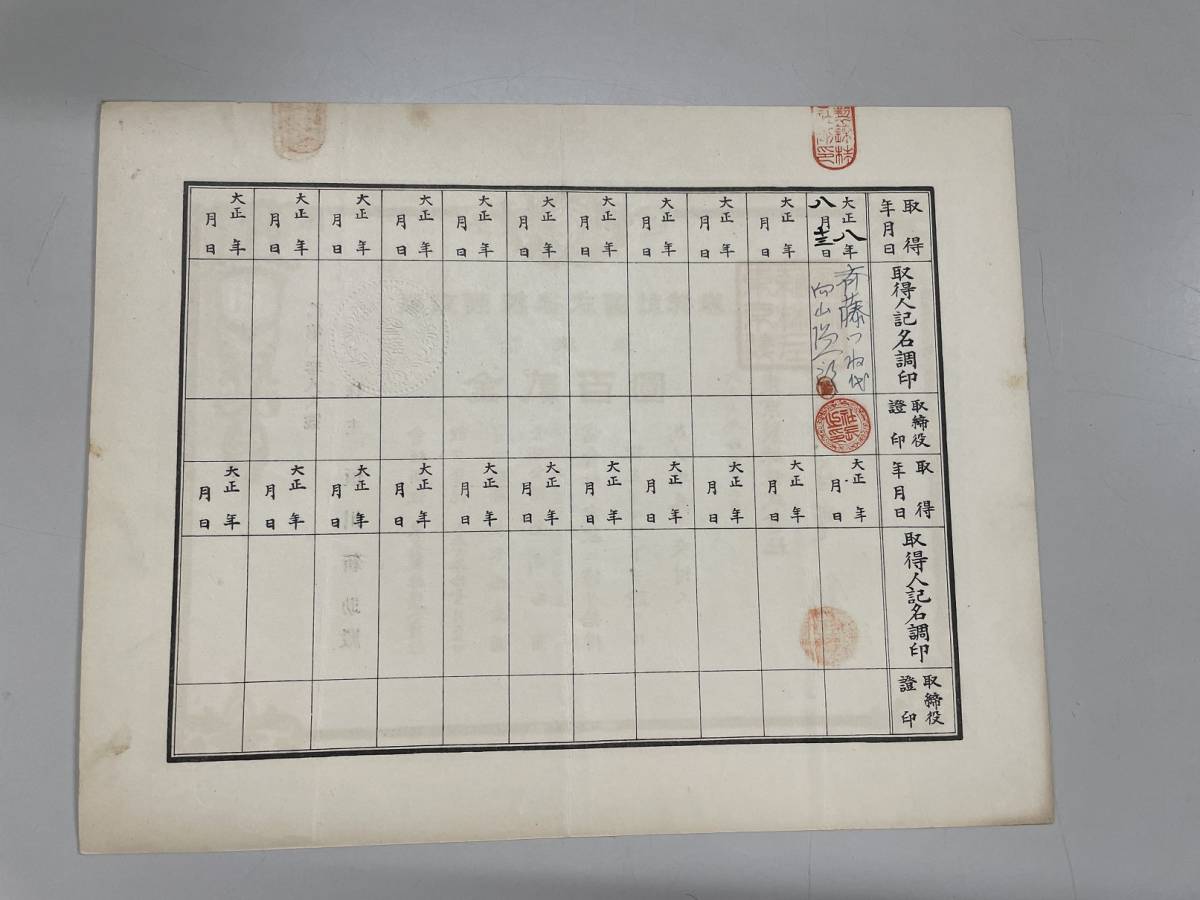 取得
年月日
取得人記名調印
取締役
證印
大正八年
八月十三日
斉藤
向山
社長之印
大正 年
月 日
大正 年
月 日
大正 年
月 日
大正 年
月 日
大正 年
月 日
大正 年
月 日
大正 年
月 日
大正 年
月 日
大正 年
月 日
大正 年
月 日
取得
年月日
取得人記名調印
取締役
證印
大正 年
月 日
大正 年
月 日
大正 年
月 日
大正 年
月 日
大正 年
月 日
大正 年
月 日
大正 年
月 日
大正 年
月 日
大正 年
月 日
大正 年
月 日
大正 年
月 日